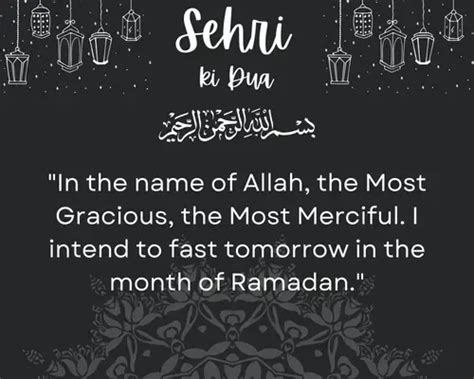 Sehri
ki Dua
بسم الله الرحمن الرحيم
"In the name of Allah, the Most
Gracious, the Most Merciful. I
intend to fast tomorrow in the
month of Ramadan."